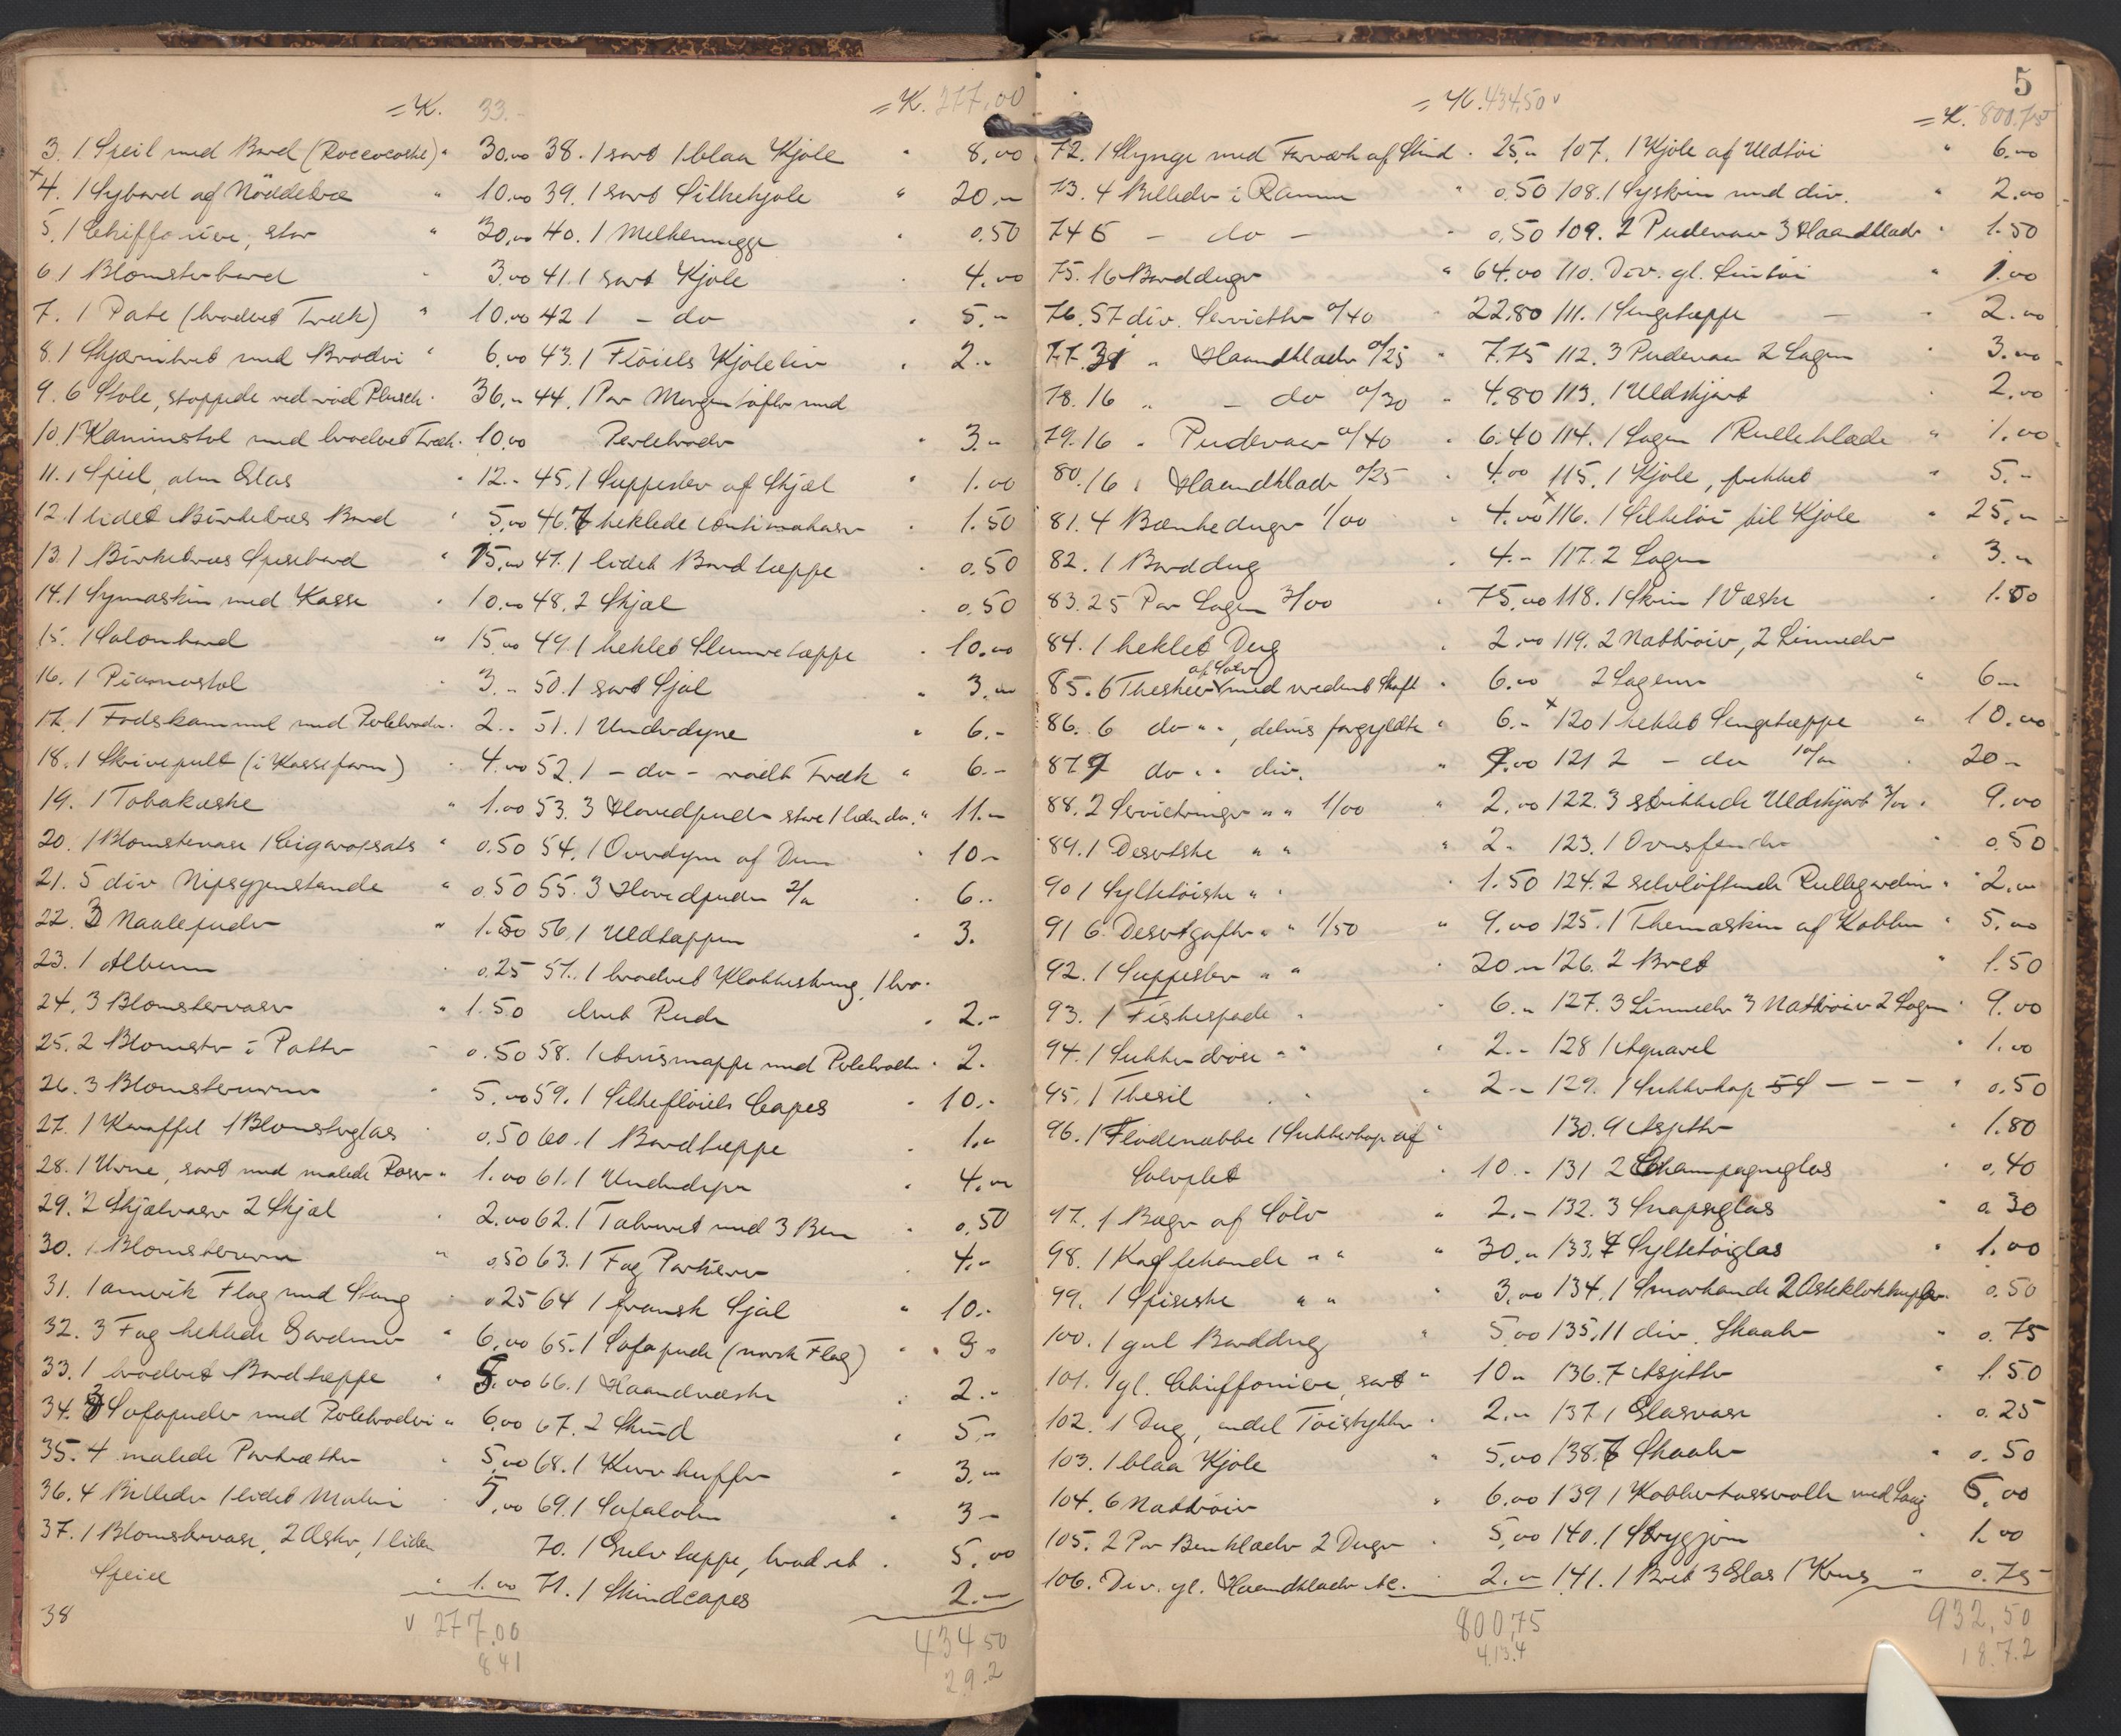 = K. 33.-
3. 1 Speil med Bord (Roccocoske) " 30,00
×4. 1 Sybord af Nöddetræ " 10,00
5. 1 Chiffoniere, stor " 20,00
6. 1 Blomsterbord " 3,00
7. 1 Pate (broderet Træk) " 10,00
8. 1 Skjærmbret med Broderi " 6,00
9. 6 Stole, stoppede ved röd Plusch " 36,"
10. 1 Kaminstol med broderet Træk " 10,00
11. 1 Speil, alm Glas " 12.-
12. 1 lidet Birketræs Bord " 5,00
13. 1 Birketræs Spisebord " 15,00
14. 1 Symaskin med Kasse " 10,00
15. 1 Salonbord " 15,00
16. 1 Pianostol " 3.-
17. 1 Fodskammel med Perlebroderi " 2.-
18. 1 Skrivepult (i Kasseform) " 4,00
19. 1 Tobakæske " 1,00
20. 1 Blomstervase 1 Cigaropsats " 0.50
21. 5 div Nipsgjenstande " 0.50
22. 3 Naalepuder " 1.50
23. 1 Album " 0.25
24. 3 Blomstervaser " 1.50
25. 2 Blomster i Potter " 0.50
26. 3 Blomsterurner " 5,00
27. 1 Karaffel 1 Blomsterglas " 0.50
28. 1 Urne, sort med malede Roser " 1.00
29. 2 Skjælvaser 2 Skjæl " 2.00
30. 1 Blomsterurn " 0.50
31. 1 amerik Flag med Stang " 0.25
32. 3 Fag heklede Gardiner " 6,00
33. 1 broderet Bordtæppe " 5.00
34. 3 Sofapuder med Perlebroderi " 6,00
35. 4 malede Portrætter " 5,00
36. 4 Billeder 1 lidet Maleri " 5,00
37. 1 Blomstervase, 2 Æsker, 1 liden
Speil " 1.00
38
v 277.00
841
= K. 277,00
38. 1 sort 1 blaa Kjole " 8,00
39. 1 sort Silkekjole " 20,"
40. 1 Melkemugge " 0.50
41. 1 sort Kjole " 4.00
42 1 - do " 5.-
43. 1 Flöiels Kjoleliv " 2.-
44. 1 Par Morgentöfler med
Perlebroder " 3.-
45. 1 Suppeslev af Skjæl " 1.00
46. 7 heklede Antimakasser " 1.50
47. 1 lidet Bordtæppe " 0.50
48. 2 Skjæl " 0.50
49. 1 heklet Slumretæppe " 10.00
50. 1 sort Sjal " 3.00
51. 1 Underdyne " 6.-
52. 1 - do - rödt Træk " 6.-
53. 3 Hovedpuder store 1 liden do. " 11.-
54. 1 Overdyne af Dun " 10-
55. 3 Hovedpuder 2/00 " 6.-
56. 1 Uldtæppen " 3.
57. 1 broderet Klokkestreng, 1 bro-
deret Pude " 2.-
58. 1 Avismappe med Perlebroderi " 2.
59. 1 Silkeflöiels Capes " 10.-
60. 1 Bordtæppe " 1.-
61. 1 Underdyne " 4.00
62. 1 Taburet med 3 Ben " 0.50
63. 1 Fag Portierer " 4.-
64 1 fransk Sjal " 10.-
65. 1 Sofapude (norsk Flag) " 3-
66. 1 Haandvæske " 2.-
67. 2 Skind " 5.-
68. 1 Kurvkuffer " 3.00
69. 1 Sofalobn " 3-
70. 1 Gulvtæppe, brodret " 5.00
71. 1 Skindcapes 2.-
434 50
29.2
= K. 434,50 v
72. 1 Slynge med Forværk af Skind " 25,"
73. 4 Billeder i Ramme " 0.50
74 5 - do - " 0,50
75. 16 Bordduger " 64.00
76. 57 div. Servietter a/40 22.80
77. 31 " Haandklæder a/25 " 7.75
78. 16 " - do a/30 " 4.80
79. 16 " Pudevaar a/40 " 6.40
80. 16 " Haandklæde a/25 " 4.00
81. 4 Bænkeduger 1/00 " 4.00
82. 1 Borddug " 4.-
83. 25 Par Lagen 3/00 " 75,00
84. 1 heklet Dug " 2.00
85. 6 Theskeer af Sölv med vredent Skaft " 6.00
86. 6 do " ", delvis forgyldte " 6.-
87 9 do " " div. " 9.00
88. 2 Servietringer " " 1/00 " 2,00
89. 1 Desertske " " " 2-
90 1 Syltetöiske " " " 1.50
91 6 Desertgafler " " 1/50 " 9.00
92. 1 Suppeslev " " " 20 "
93. 1 Fiskespade " " 6.-
94. 1 Sukkerdrösse " " " 2.-
95. 1 Thesil " " " 2.-
96. 1 Flödenæbbe 1 Sukkerkop af "
Sølvplet " 10.-
97. 1 Bæger af Sölv " 2.-
98. 1 Kaffekande " " " 30."
99. 1 Spiseske " " " 3,00
100. 1 gul Borddug " 5.00
101. 1 gl. Chiffoniere, sort " 10 "
102. 1 Dug, endel Töistykker " 2.-
103. 1 blaa Kjole " 5,00
104. 6 Nattröier " 6.00
105. 2 Par Benklæder 2 Duger " 5,00
106. Div. gl. Haandklæder &c. " 2.-
800,75
4.13.4
5
= K. 800.75
107. 1 Kjole af Uldtöi " 6.00
108. 1 Syskrin med div. " 2.00
109. 2 Pudevaar 3 Haandklæder " 1.50
110. Div. gl. Lintöi " 1.00
111. 1 Sengetæppe - " 2.00
112. 3 Pudevaar 2 Lagen " 3.00
113. 1 Uldskjört " 2.00
114. 1 Lagen 1 Rulleklæde " 1.00
115. 1 Kjole, prikket " 5.-
×116. 1 Silketöi til Kjole " 25,"
117. 2 Lagen " 3.-
118. 1 Skrin 1 Væske " 1.50
119. 2 Nattröier, 2 Linneder
2 Lagener " 6-
×120 1 heklet Sengetæppe " 10.00
121 2 - do 10/00 " 20-
122. 3 strikkede Uldskjört 3/00 " 9.00
123. 1 Ovnsfender " 0.50
124. 2 selvløftende Rullegardin " 2.00
125. 1 Themaskin af Kobber " 5.00
126. 2 Bret " 1.50
127. 3 Linneder 3 Nattröier 2 Lagen " 9.00
128 1 Aquarel " 1.00
129. 1 Sukkerkop - - - " 0.50
130. 9 Asjetter " 1.80
131 2 Champagneglas " 0.40
132. 3 Snapsglas " 0.30
133. 4 Syltetöiglas " 1.00
134. 1 Smørkande 2 Osteklokkupler " 0.50
135. 11 div. Skaaler " 0.75
136. 7 Asjetter " 1.50
137 1 Glasvase " 0.25
138. 7 Skaaler " 0.50
139 1 Kobberkasserolle med Laag 5,00
140. 1 Strygjern " 1.00
141. 1 Bret 3 Glas 1 Krus " 0.75
932,50
18.7.2